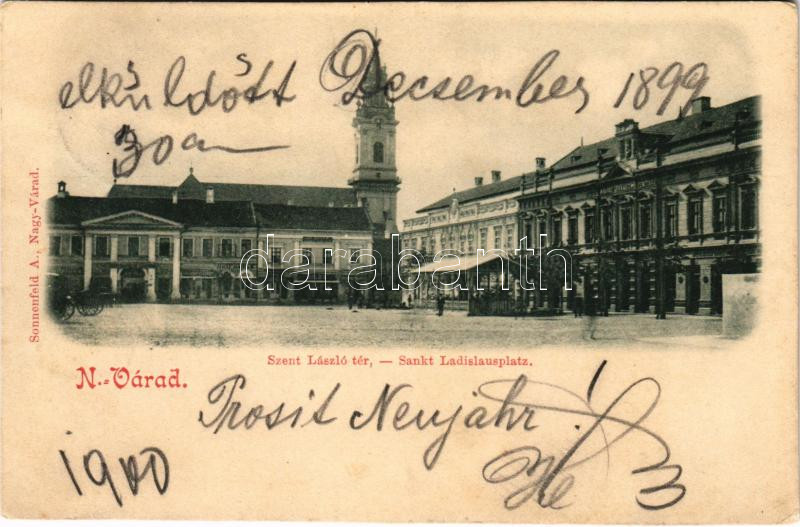 elküldött Decsember 1899
30án
Sonnenfeld A., Nagy-Várad.
darabanth
Szent László tér, — Sankt Ladislausplatz.
N.-Várad.
Prosit Neujahr!
1900